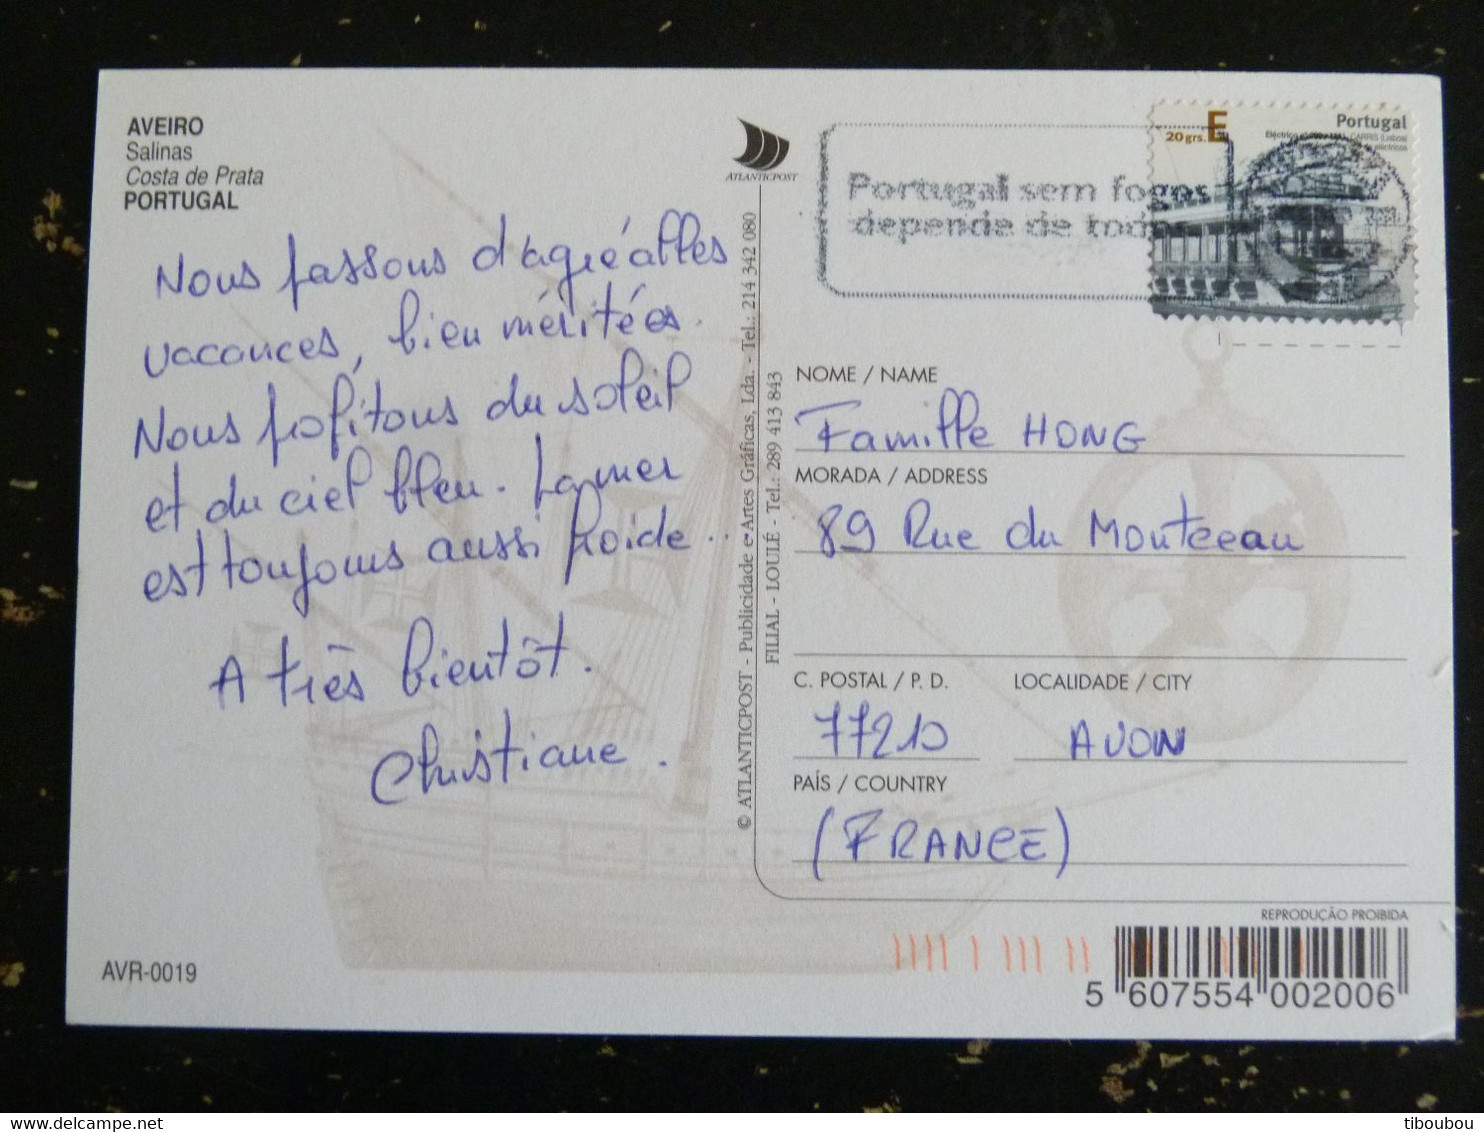 AVEIRO
Salinas
Costa de Prata
PORTUGAL
Nous passons d'agréables
vacances, bien méritées.
Nous profitons du soleil
et du ciel bleu. La mer
est toujours aussi froide..
A très bientôt.
Christiane.
AVR-0019
ATLANTICPOST
© ATLANTICPOST - Publicidade e Artes Gráficas, Lda. - Tel.: 214 342 080
FILIAL - LOULÉ - Tel.: 289 413 843
Portugal sem fogos
depende de todos
20 grs. E
Portugal
CARRIS (Lisboa)
NOME / NAME
Famille HONG
MORADA / ADDRESS
89 Rue du Montceau
C. POSTAL / P. D. LOCALIDADE / CITY
77210 AVON
PAÍS / COUNTRY
(FRANCE)
REPRODUÇÃO PROIBIDA
5 607554 002006
tiboubou